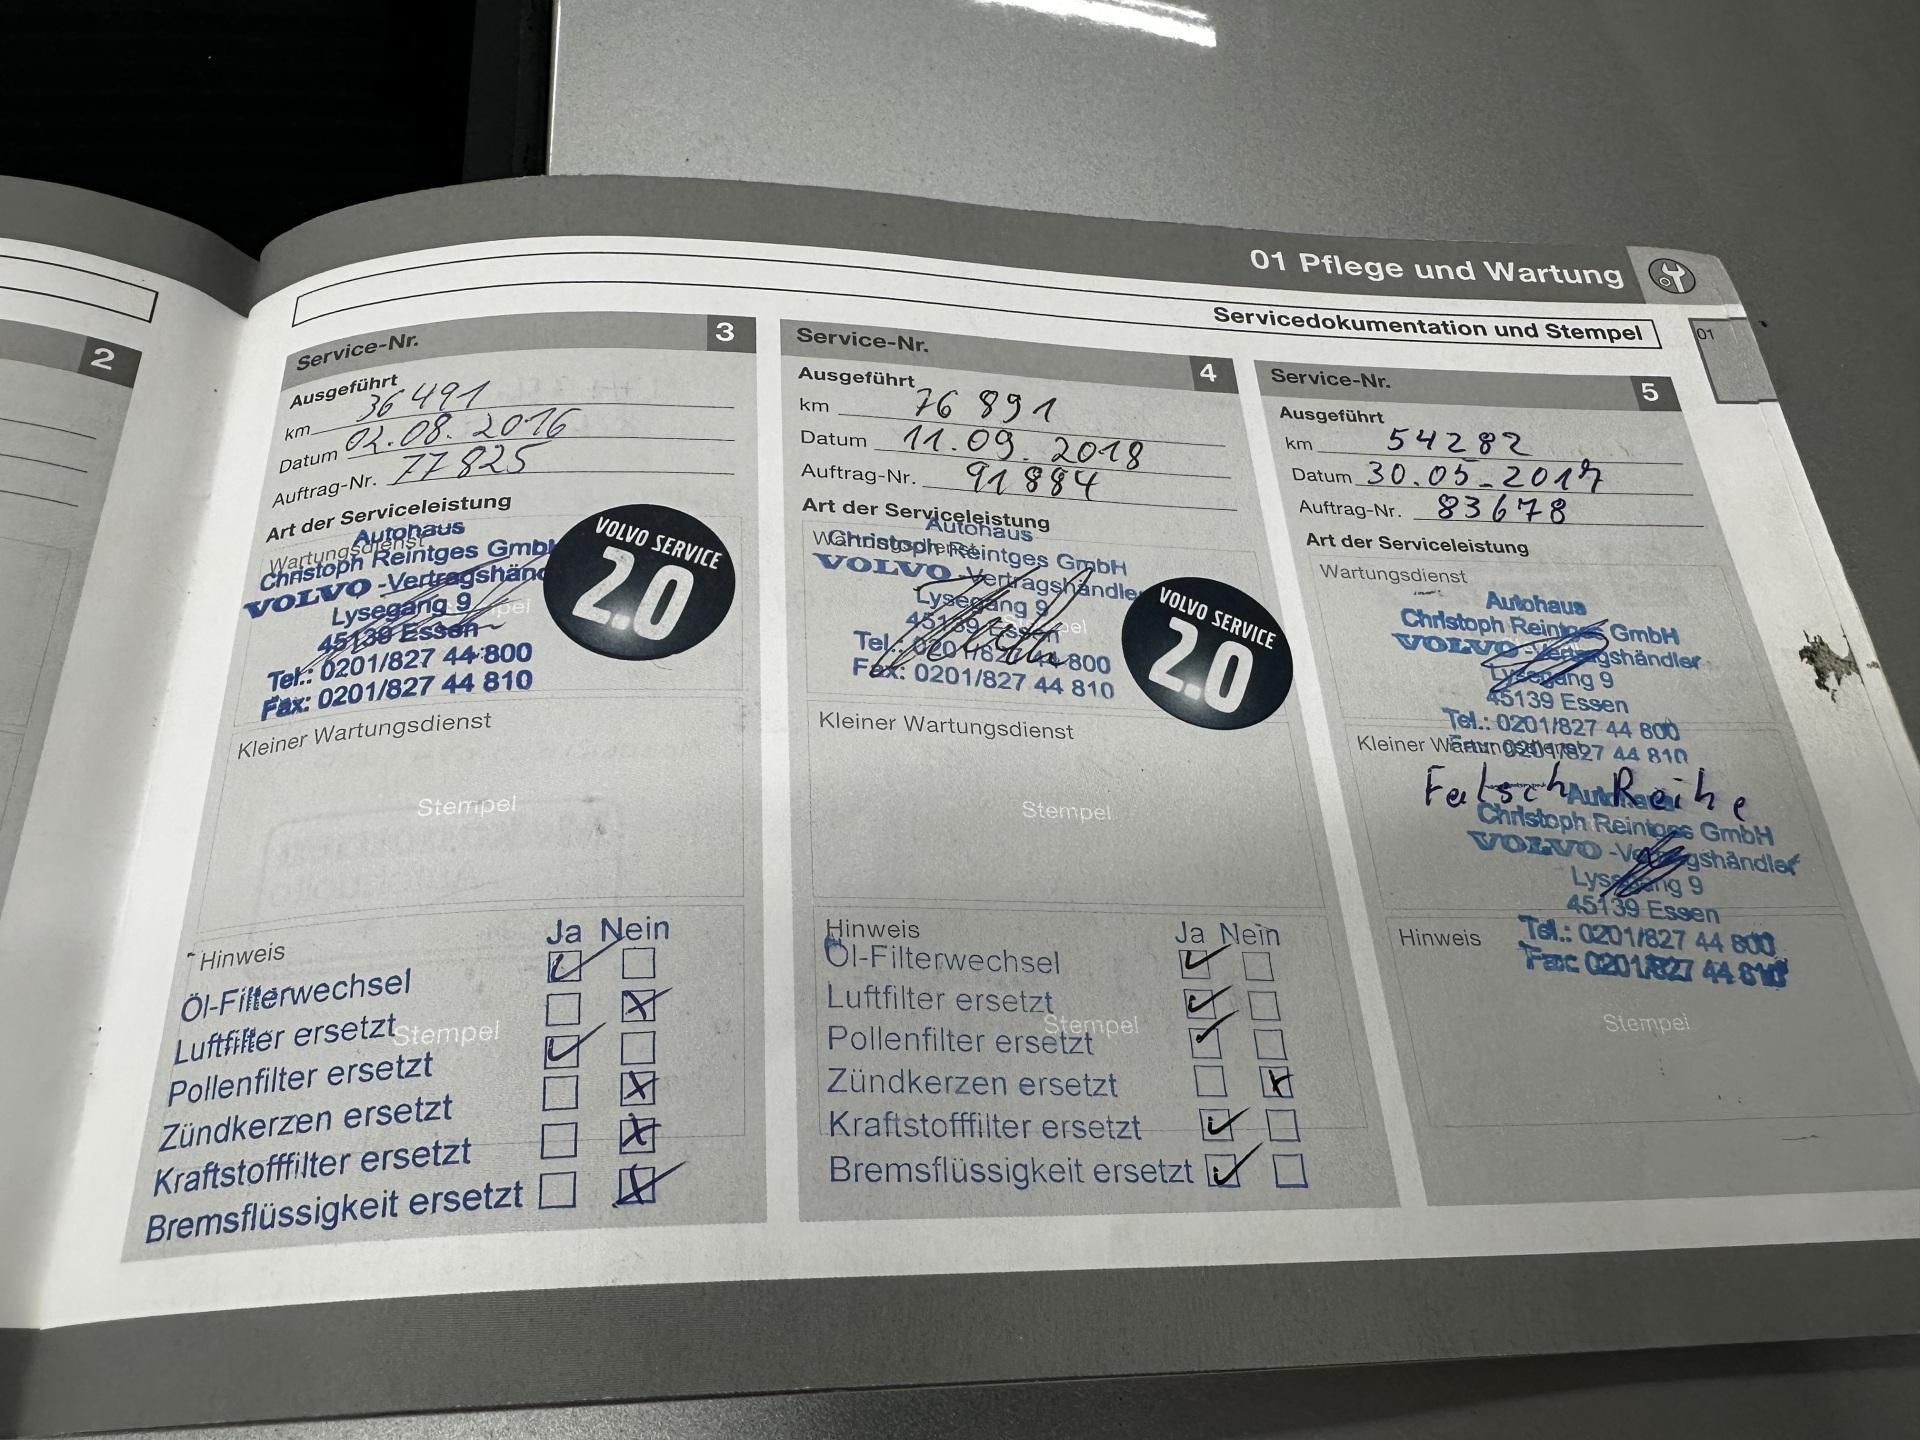 01 Pflege und Wartung
Servicedokumentation und Stempel
01
2
Service-Nr. 3
Ausgeführt
km 36 491
Datum 02.08.2016
Auftrag-Nr. 77825
Art der Serviceleistung
Wartungsdienst
Autohaus
Christoph Reintges GmbH
VOLVO -Vertragshänd
Lysegang 9
45139 Essen
Tel.: 0201/827 44 800
Fax: 0201/827 44 810
VOLVO SERVICE
2.0
Kleiner Wartungsdienst
Stempel
Hinweis
Ja Nein
Öl-Filterwechsel
Luftfilter ersetzt
Stempel
Pollenfilter ersetzt
Zündkerzen ersetzt
Kraftstofffilter ersetzt
Bremsflüssigkeit ersetzt
Service-Nr. 4
Ausgeführt
km 76 891
Datum 11.09.2018
Auftrag-Nr. 91 884
Art der Serviceleistung
Wartungsdienst
Autohaus
Christoph Reintges GmbH
VOLVO -Vertragshändler
Lysegang 9
45139 Essen
Tel.: 0201/827 44 800
Fax: 0201/827 44 810
VOLVO SERVICE
2.0
Kleiner Wartungsdienst
Stempel
Hinweis
Ja Nein
Öl-Filterwechsel
Luftfilter ersetzt
Stempel
Pollenfilter ersetzt
Zündkerzen ersetzt
Kraftstofffilter ersetzt
Bremsflüssigkeit ersetzt
Service-Nr. 5
Ausgeführt
km 54282
Datum 30.05.2017
Auftrag-Nr. 83678
Art der Serviceleistung
Wartungsdienst
Autohaus
Christoph Reintges GmbH
VOLVO -Vertragshändler
Lysegang 9
45139 Essen
Tel.: 0201/827 44 800
Fax: 0201/827 44 810
Kleiner Wartungsdienst
Falsch Reihe
Autohaus
Christoph Reintges GmbH
VOLVO -Vertragshändler
Lysegang 9
45139 Essen
Tel.: 0201/827 44 800
Fax: 0201/827 44 810
Hinweis
Stempel